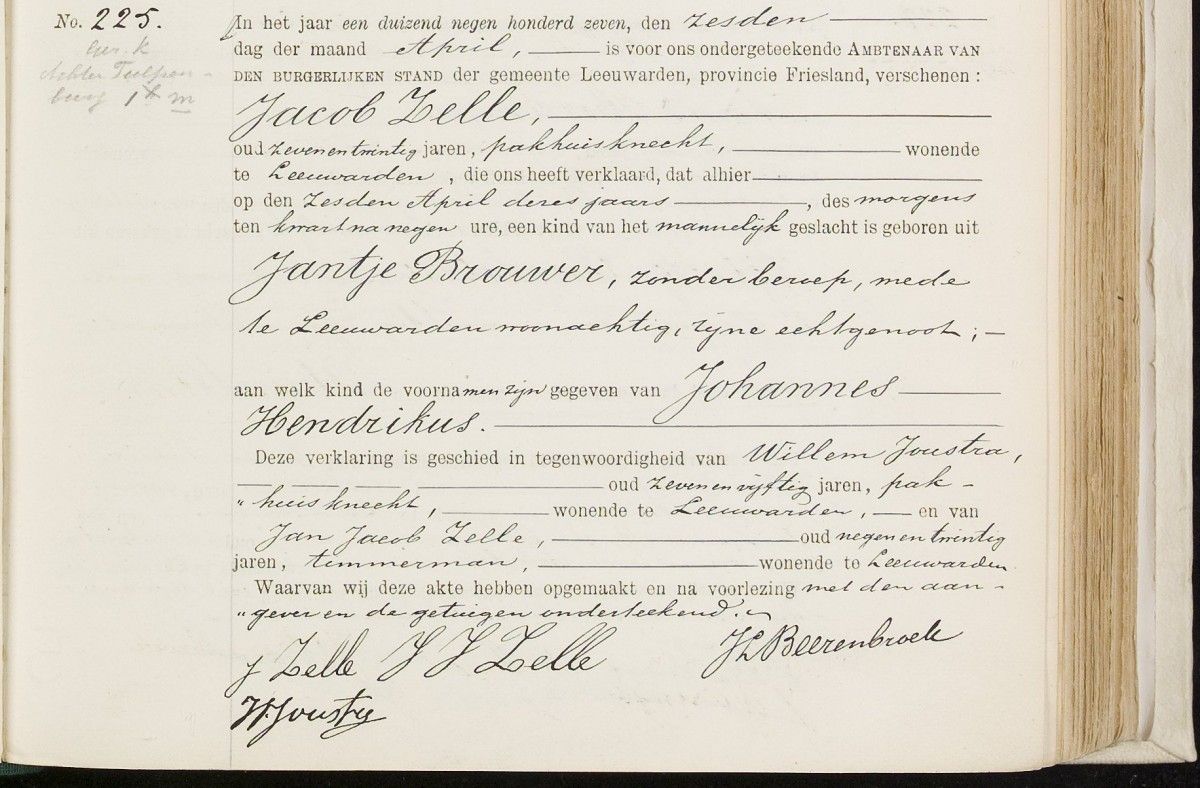 No. 225.
In het jaar een duizend negen honderd zeven, den zesden
dag der maand April, is voor ons ondergeteekende AMBTENAAR VAN
DEN BURGERLIJKEN STAND der gemeente Leeuwarden, provincie Friesland, verschenen :
Jacob Zelle,
oud zevenentwintig jaren, pakhuisknecht, wonende
te Leeuwarden , die ons heeft verklaard, dat alhier
op den zesden April dezes jaars , des morgens
ten kwart na negen ure, een kind van het mannelijk geslacht is geboren uit
Jantje Brouwer, zonder beroep, mede
te Leeuwarden woonachtig, zijne echtgenoot ;
aan welk kind de voornamen zijn gegeven van Johannes
Hendrikus.
Deze verklaring is geschied in tegenwoordigheid van Willem Joustra,
oud zevenenvijftig jaren, pak-
"huisknecht, wonende te Leeuwarden, en van
Jan Jacob Zelle, oud negenentwintig
jaren, timmerman, wonende te Leeuwarden.
Waarvan wij deze akte hebben opgemaakt en na voorlezing met den aan-
"gever en de getuigen onderteekend.
J Zelle J J Zelle
Beerenbroek
W. Joustra